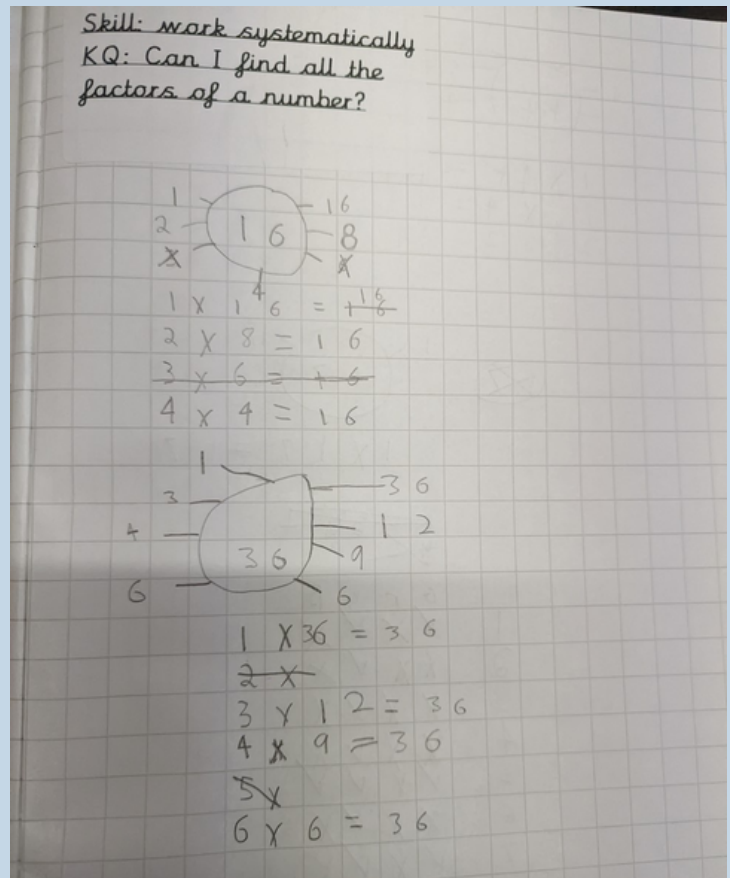 Skill: work systematically
KQ: Can I find all the
factors of a number?
1 16
2 16 8
4
1 x 16 = 16
2 x 8 = 16
3 x 6 = 16
4 x 4 = 16
1 36
3
4 12
36 9
6 6
1 x 36 = 36
2 x
3 x 12 = 36
4 x 9 = 36
5 x
6 x 6 = 36